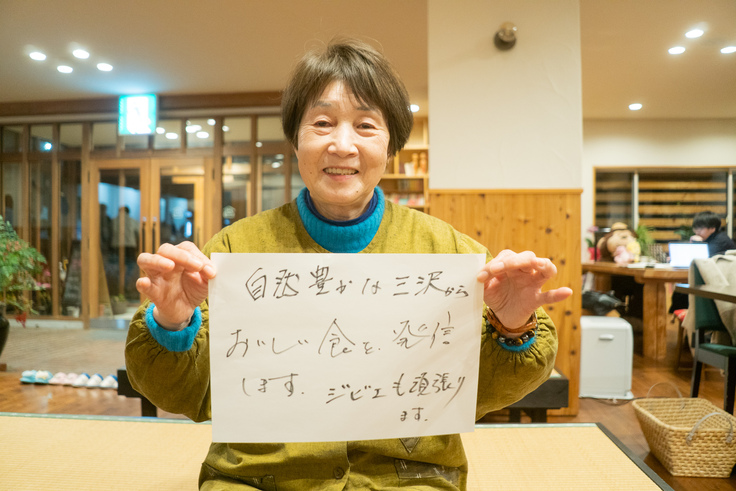 自然豊かな三沢から
おいしい食を、発信
します。ジビエも頑張り
ます。